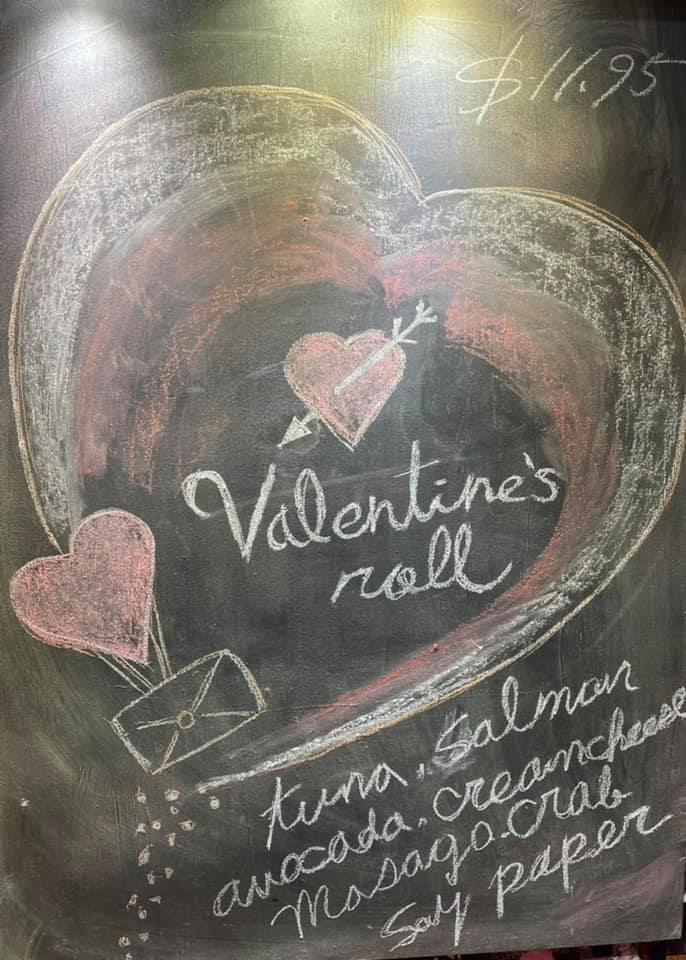 $11.95
Valentine's
roll
tuna, salmon
avocado, creamcheese
Masago. crab
Soy paper